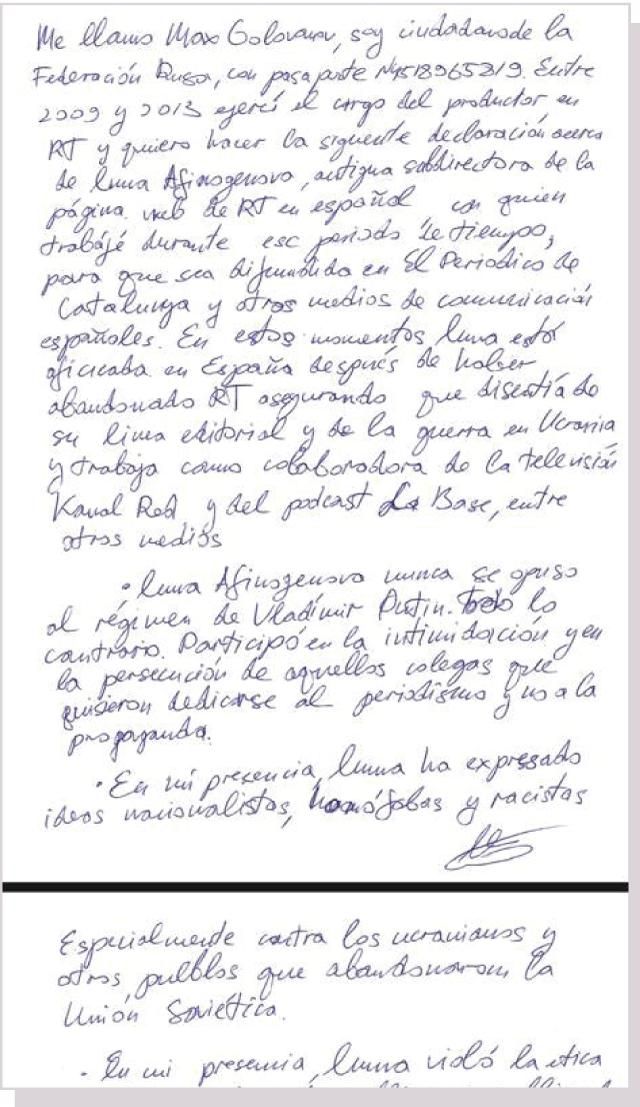 Me llamo Max Golovanov, soy ciudadano de la
Federación Rusa, con pasaporte Nº518965219. Entre
2009 y 2013 ejercí el cargo del productor en
RT y quiero hacer la siguente declaración acerca
de Inna Afinogenova, antigua subdirectora de la
página web de RT en español con quien
trabajé durante ese periodo de tiempo,
para que sea difundida en El Periodico de
Catalunya y otros medios de comunicación
españoles. En estos momentos Inna está
en España después de haber
abandonado RT asegurando que disentía de
su linia editorial y de la guerra en Ucrania
y trabaja como colaboradora de la televisión
Kanal Red y del podcast La Base, entre
otros medios
• Inna Afinogenova nunca se opuso
al régimen de Vladímir Putin. Todo lo
contrario. Participó en la intimidación y en
la persecución de aquellos colegas que
quisieron dedicarse al periodismo y no a la
propaganda.
• En mi presencia, Inna ha expresado
ideas nacionalistas, homófobas y racistas
Especialmente contra los ucranianos y
otros pueblos que abandonaron la
Unión Soviética.
• En mi presencia, Inna violó la etica